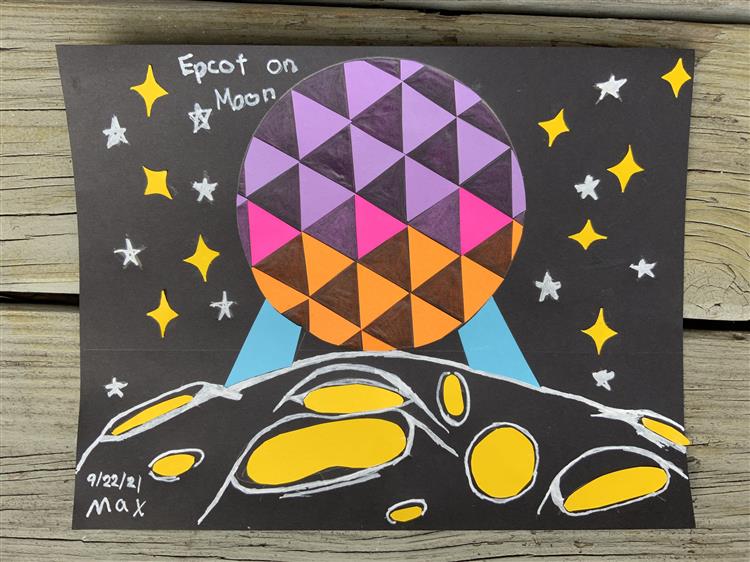 Epcot on
Moon
9/22/21
Max